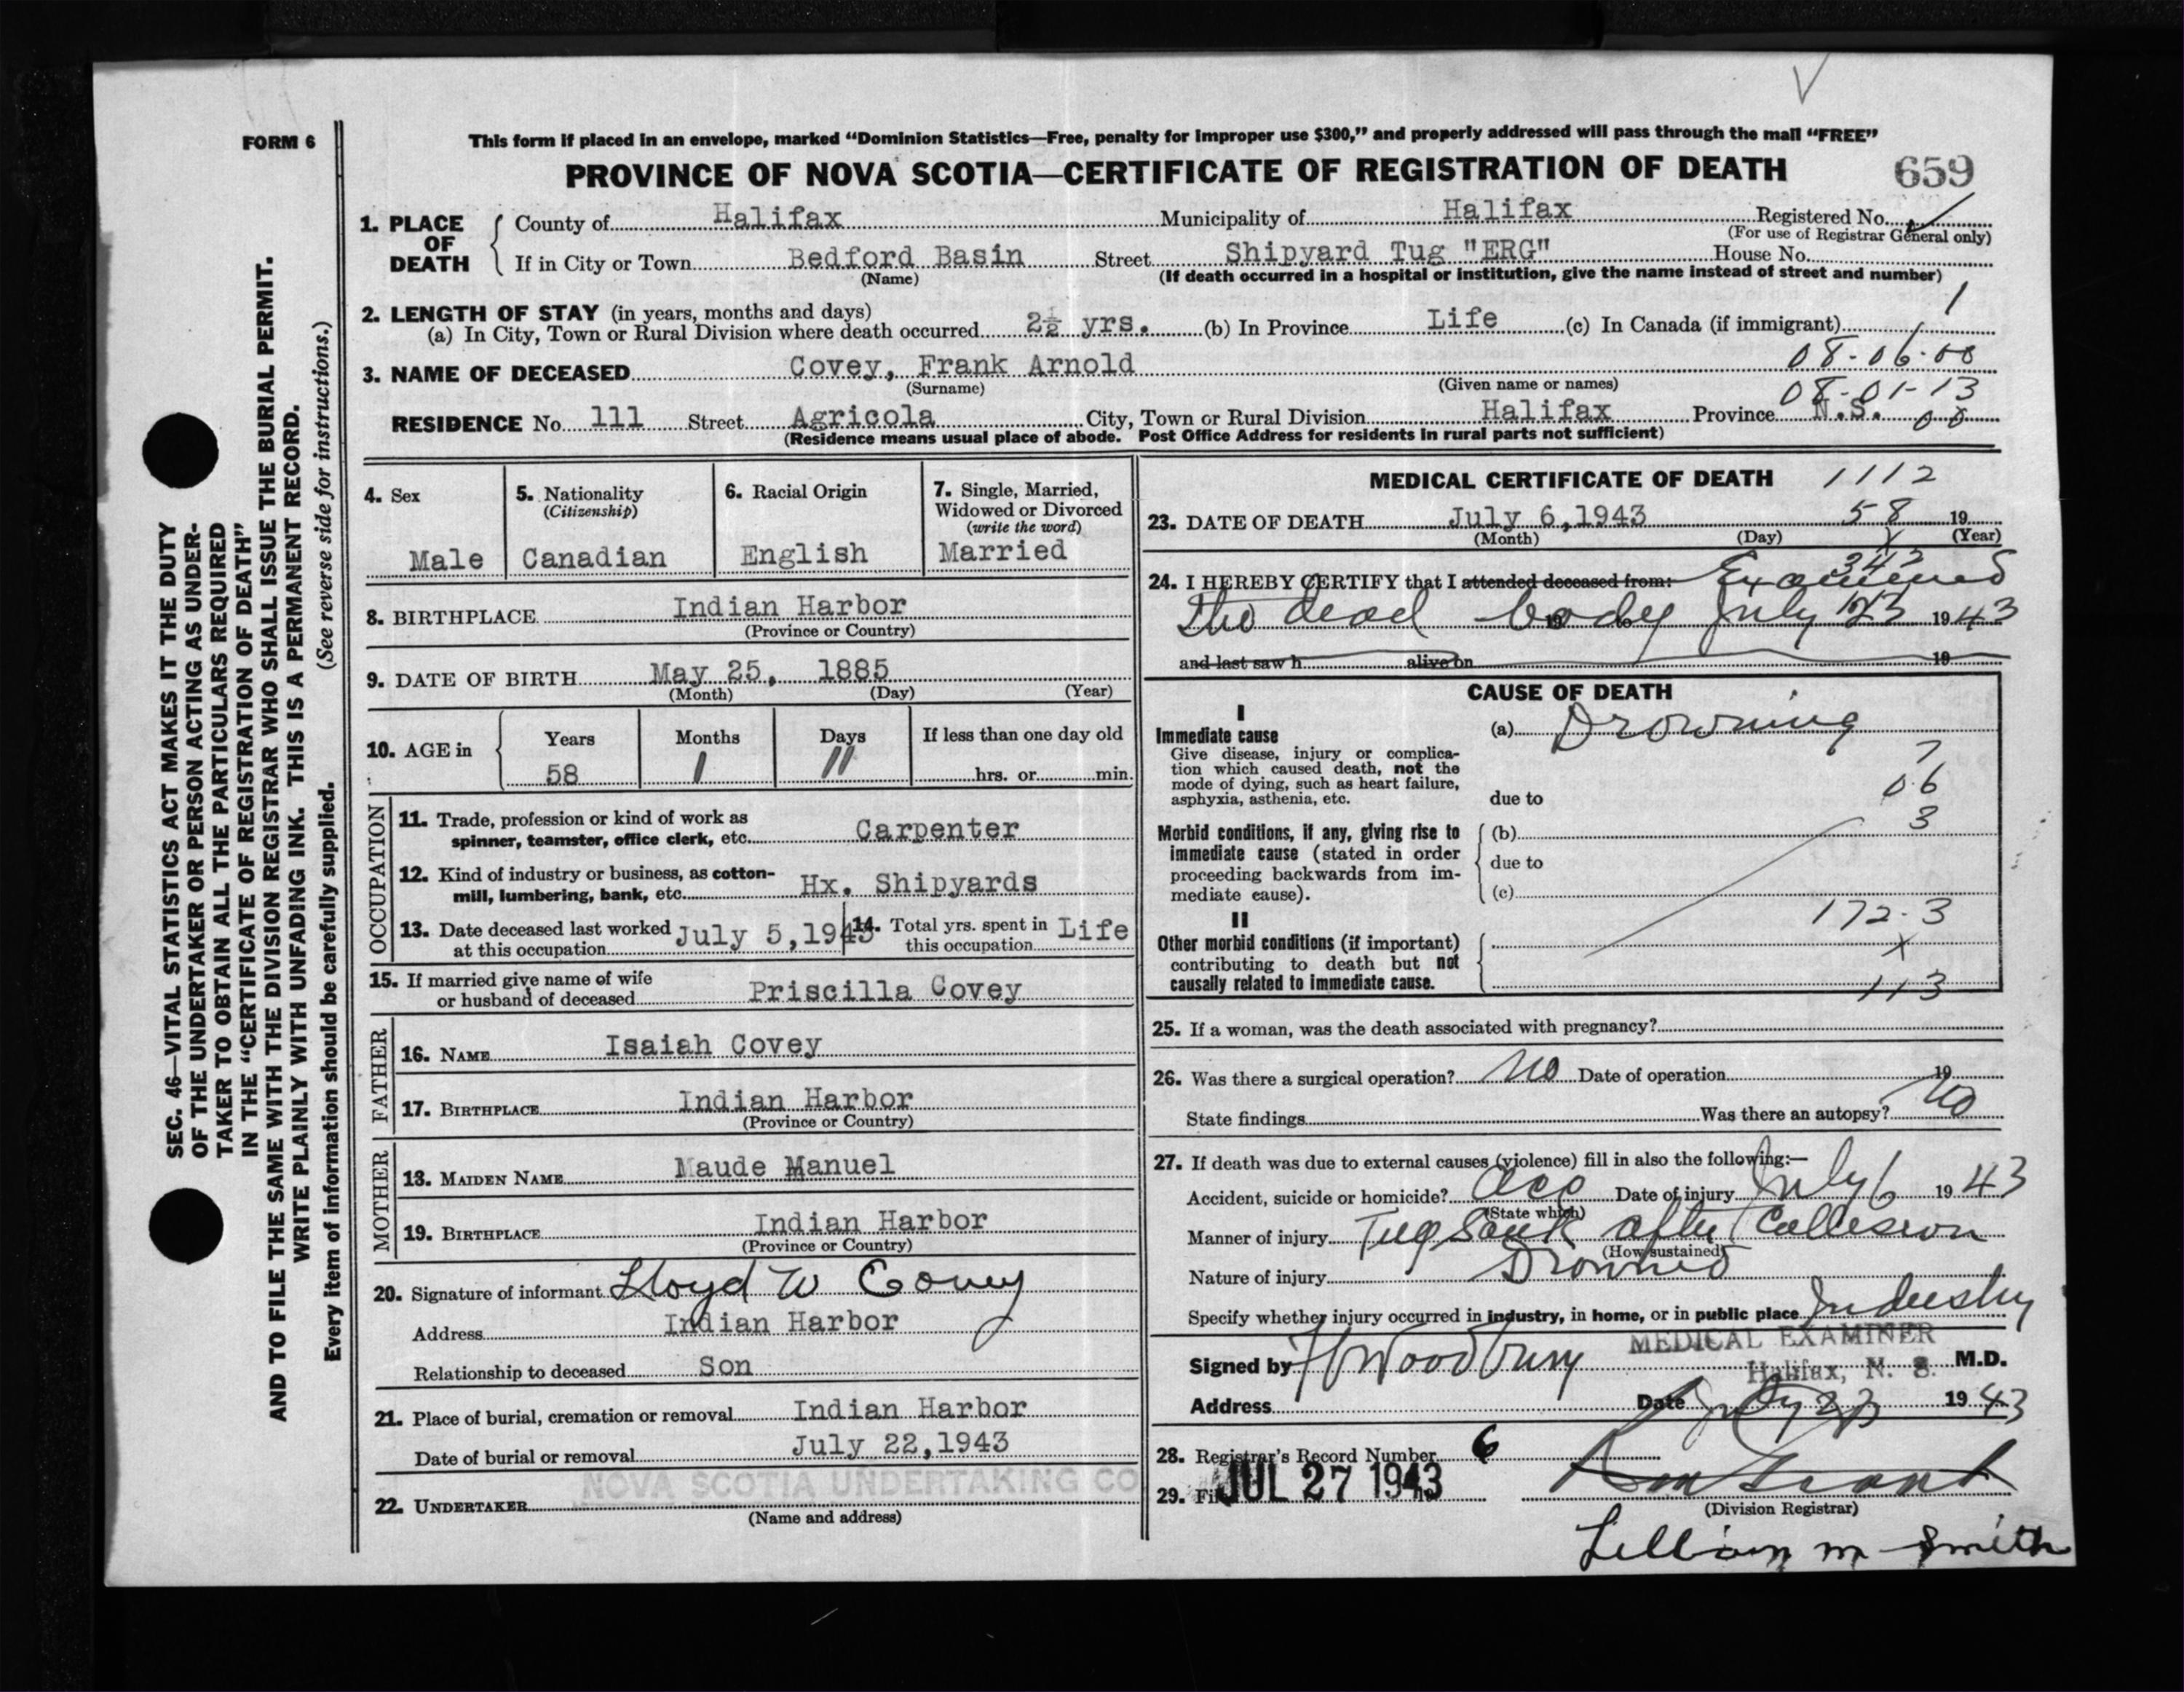 FORM 6
This form if placed in an envelope, marked “Dominion Statistics—Free, penalty for improper use $300,” and properly addressed will pass through the mail “FREE”
PROVINCE OF NOVA SCOTIA—CERTIFICATE OF REGISTRATION OF DEATH
659
1. PLACE OF DEATH
County of Halifax Municipality of Halifax Registered No.
(For use of Registrar General only)
If in City or Town Bedford Basin Street Shipyard Tug "ERG" House No.
(Name) (If death occurred in a hospital or institution, give the name instead of street and number)
2. LENGTH OF STAY (in years, months and days) 1
(a) In City, Town or Rural Division where death occurred 2½ yrs. (b) In Province Life (c) In Canada (if immigrant)
08-06-00
3. NAME OF DECEASED Covey, Frank Arnold
(Surname) (Given name or names) 08-01-13
RESIDENCE No. 111 Street Agricola City, Town or Rural Division Halifax Province N.S.
(Residence means usual place of abode. Post Office Address for residents in rural parts not sufficient)
4. Sex
Male
5. Nationality
(Citizenship)
Canadian
6. Racial Origin
English
7. Single, Married,
Widowed or Divorced
(write the word)
Married
8. BIRTHPLACE Indian Harbor
(Province or Country)
9. DATE OF BIRTH May 25, 1885
(Month) (Day) (Year)
10. AGE in
Years Months Days If less than one day old
58 1 11 hrs. or min.
OCCUPATION
11. Trade, profession or kind of work as
spinner, teamster, office clerk, etc. Carpenter
12. Kind of industry or business, as cotton-
mill, lumbering, bank, etc. Hx. Shipyards
13. Date deceased last worked
at this occupation July 5,1943
14. Total yrs. spent in
this occupation Life
15. If married give name of wife
or husband of deceased Priscilla Covey
FATHER
16. NAME Isaiah Covey
17. BIRTHPLACE Indian Harbor
(Province or Country)
MOTHER
18. MAIDEN NAME Maude Manuel
19. BIRTHPLACE Indian Harbor
(Province or Country)
20. Signature of informant Lloyd W Covey
Address Indian Harbor
Relationship to deceased Son
21. Place of burial, cremation or removal Indian Harbor
Date of burial or removal July 22,1943
NOVA SCOTIA UNDERTAKING CO
22. UNDERTAKER
(Name and address)
MEDICAL CERTIFICATE OF DEATH 1112
23. DATE OF DEATH July 6,1943 58 19
(Month) (Day) (Year)
24. I HEREBY CERTIFY that I attended deceased from: Examined
the dead body July 1943
and last saw h alive on 19
CAUSE OF DEATH
I
Immediate cause
Give disease, injury or complica-
tion which caused death, not the
mode of dying, such as heart failure,
asphyxia, asthenia, etc.
(a) Drowning
7
06
3
due to
Morbid conditions, if any, giving rise to
immediate cause (stated in order
proceeding backwards from im-
mediate cause).
(b)
due to
(c)
172-3
x
113
II
Other morbid conditions (if important)
contributing to death but not
causally related to immediate cause.
25. If a woman, was the death associated with pregnancy?
26. Was there a surgical operation? No Date of operation 19
State findings Was there an autopsy? No
27. If death was due to external causes (violence) fill in also the following:—
Accident, suicide or homicide? Acc Date of injury July 6 1943
(State which)
Manner of injury Tug Sank after Collision
(How sustained)
Nature of injury Drowned
Specify whether injury occurred in industry, in home, or in public place Industry
MEDICAL EXAMINER
Signed by Woodbury Halifax, N. S. M.D.
Address Date July 23 1943
28. Registrar's Record Number 6
29. Fi JUL 27 1943
(Division Registrar)
Lillian M Smith
SEC. 46—VITAL STATISTICS ACT MAKES IT THE DUTY
OF THE UNDERTAKER OR PERSON ACTING AS UNDER-
TAKER TO OBTAIN ALL THE PARTICULARS REQUIRED
IN THE “CERTIFICATE OF REGISTRATION OF DEATH”
AND TO FILE THE SAME WITH THE DIVISION REGISTRAR WHO SHALL ISSUE THE BURIAL PERMIT.
WRITE PLAINLY WITH UNFADING INK. THIS IS A PERMANENT RECORD.
Every item of information should be carefully supplied. (See reverse side for instructions.)